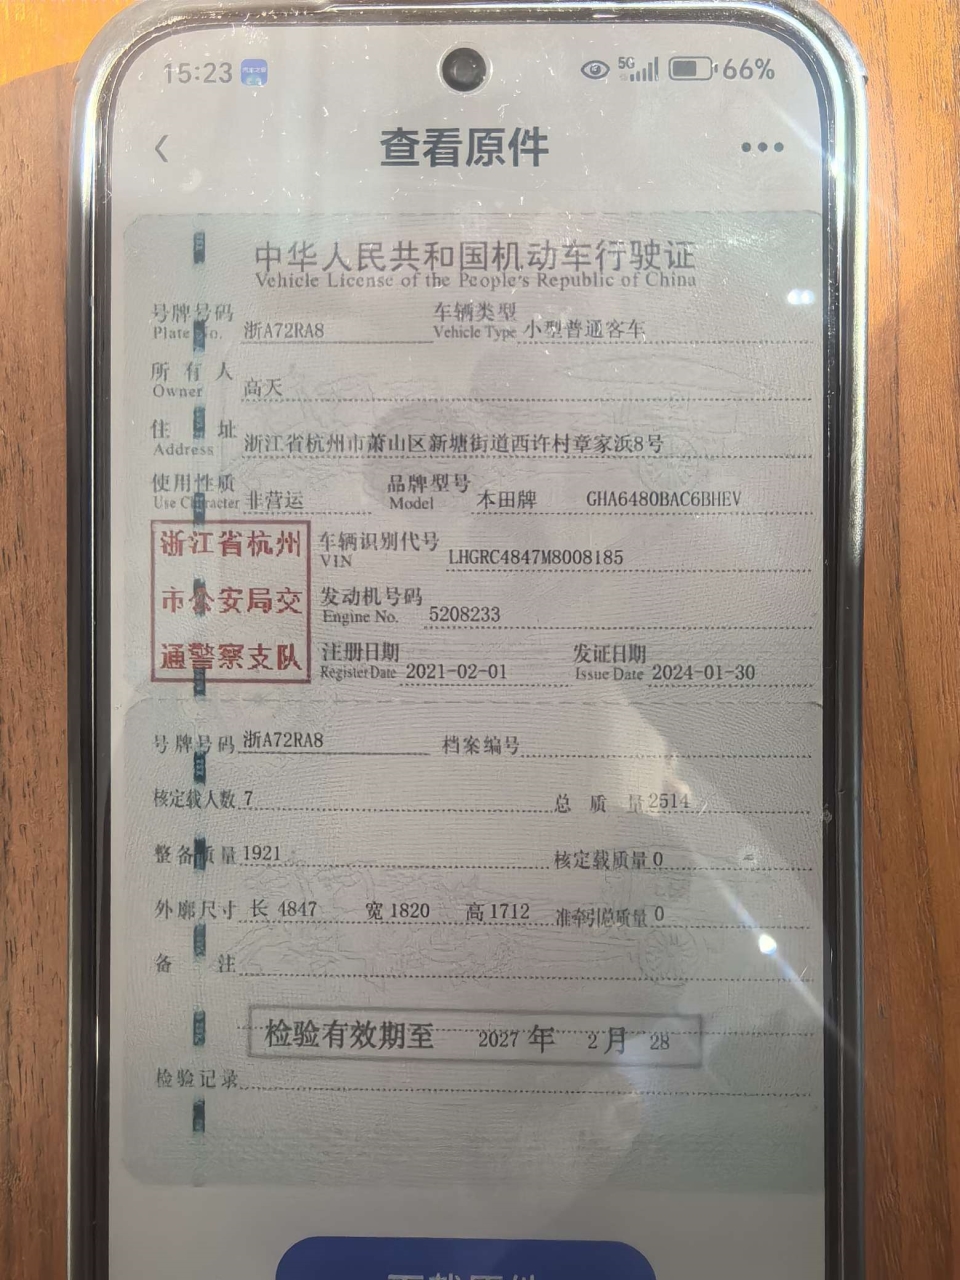 15:23 5G 66%
查看原件
中华人民共和国机动车行驶证
Vehicle License of the People's Republic of China
号牌号码 浙A72RA8 车辆类型 小型普通客车
Plate No. Vehicle Type
所有人 高天
Owner
住址 浙江省杭州市萧山区新塘街道西许村章家浜8号
Address
使用性质 非营运 品牌型号 本田牌 GHA6480BAC6BHEV
Use Character Model
浙江省杭州
市公安局交
通警察支队
车辆识别代号 LHGRC4847M8008185
VIN
发动机号码 5208233
Engine No.
注册日期 2021-02-01 发证日期 2024-01-30
Register Date Issue Date
号牌号码 浙A72RA8 档案编号
核定载人数 7 总质量 2514
整备质量 1921 核定载质量 0
外廓尺寸 长 4847 宽 1820 高 1712 准牵引总质量 0
备注
检验有效期至 2027 年 2 月 28
检验记录